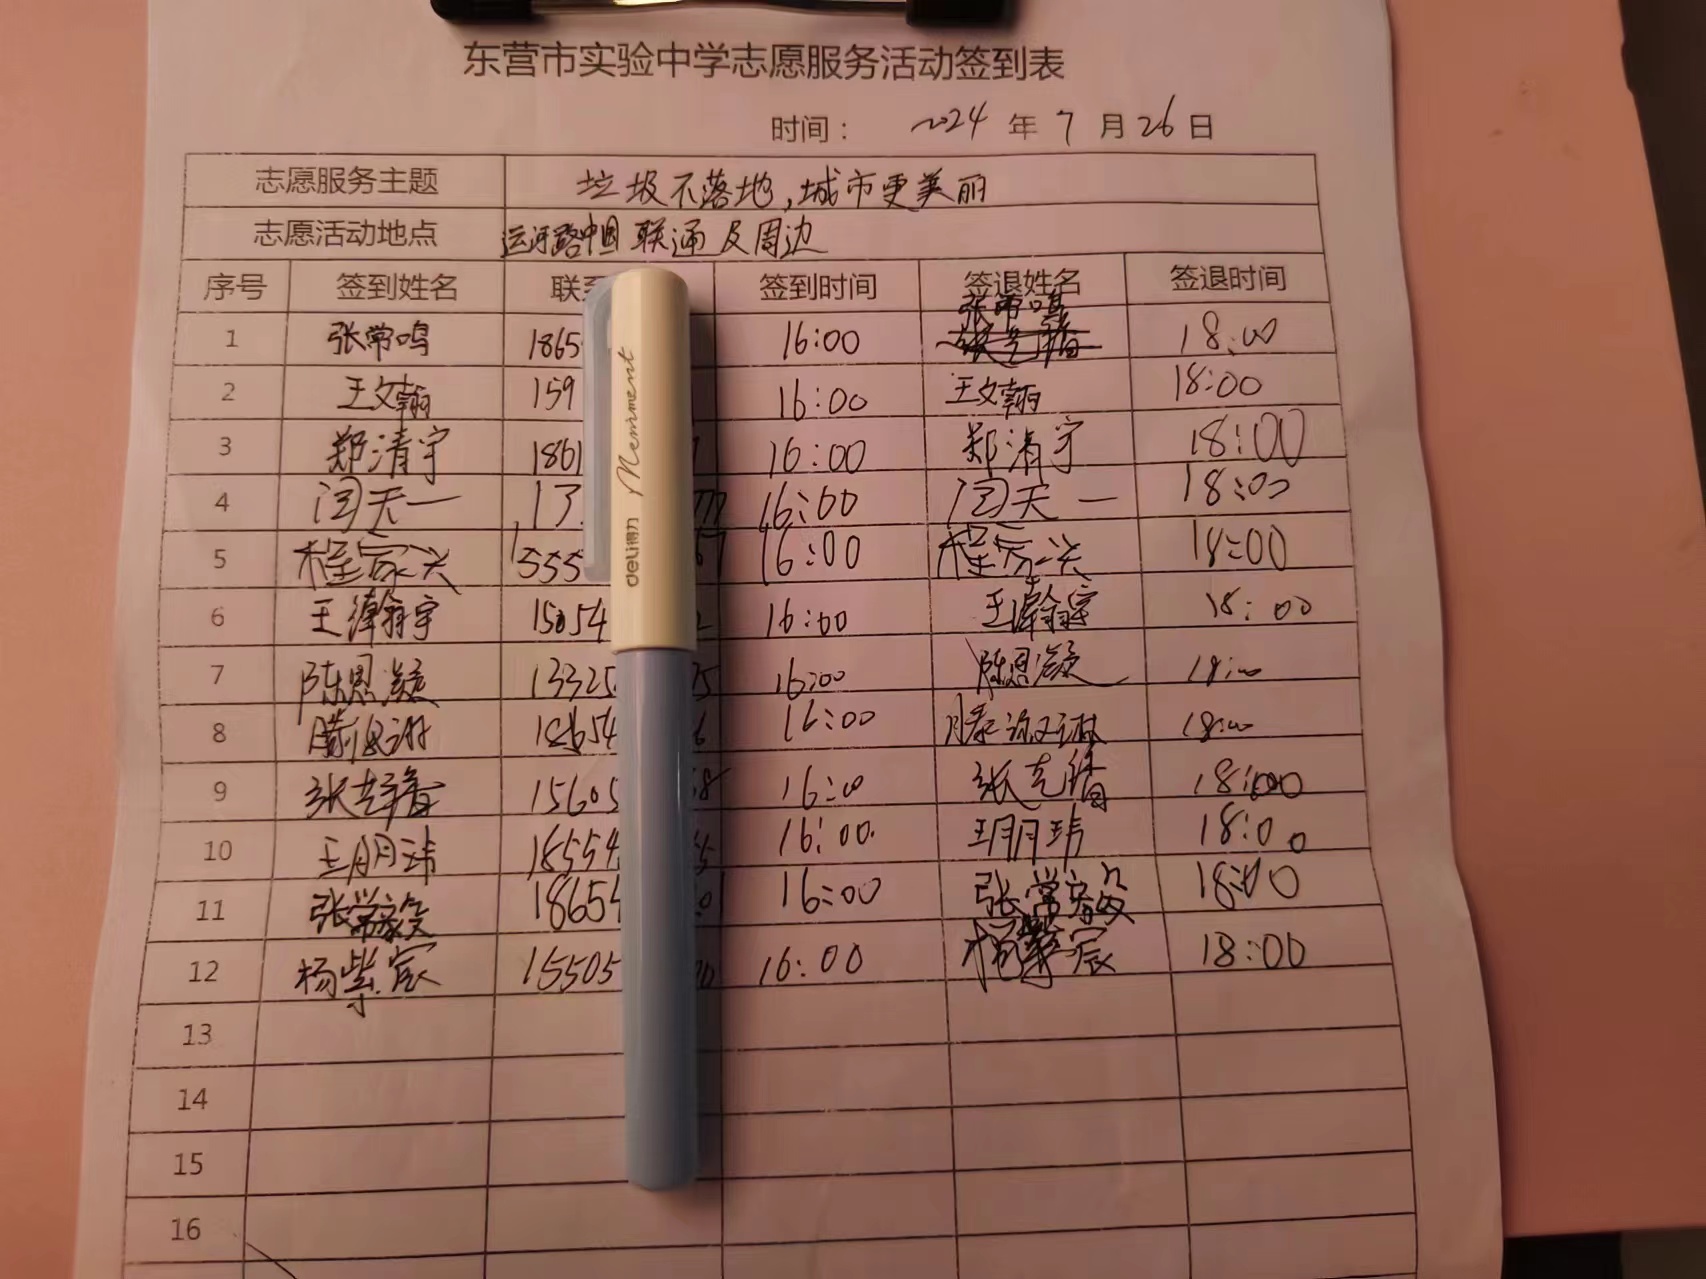 东营市实验中学志愿服务活动签到表
时间： 2024 年 7 月 26 日
志愿服务主题 垃圾不落地，城市更美丽
志愿活动地点 运河路中国联通及周边
序号 签到姓名 联系 签到时间 签退姓名 签退时间
1 张常鸣 1865 16:00 张常鸣 18:00
2 王文翰 159 16:00 王文翰 18:00
3 郑清宇 1861 16:00 郑清宇 18:00
4 闫天一 17 16:00 闫天一 18:00
5 程家兴 1555 67 16:00 程家兴 18:00
6 王瀚宇 15054 2 16:00 王瀚宇 18:00
7 陈恩凝 13325 75 16:00 陈恩凝 18:00
8 18654 6 16:00 18:00
9 15605 58 16:00 18:00
10 王朋玮 18554 16:00 王朋玮 18:00
11 张常毅 18654 01 16:00 张常毅 18:00
12 杨紫宸 15505 16:00 杨紫宸 18:00
13
14
15
16
deli得力 Merriment